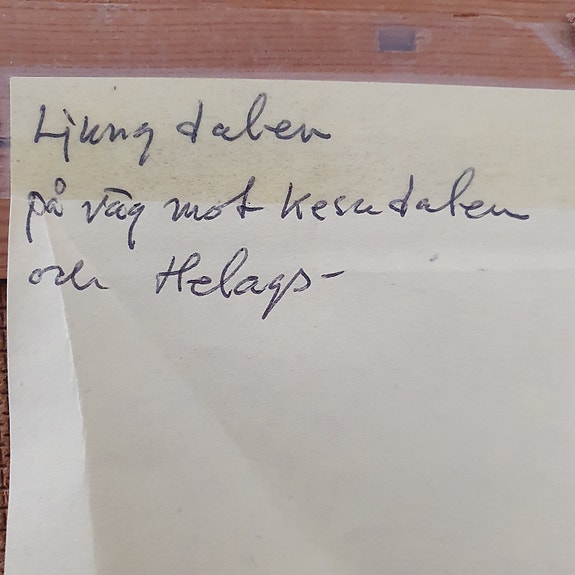 Ljungdalen
på väg mot Kesudalen
och Helags-